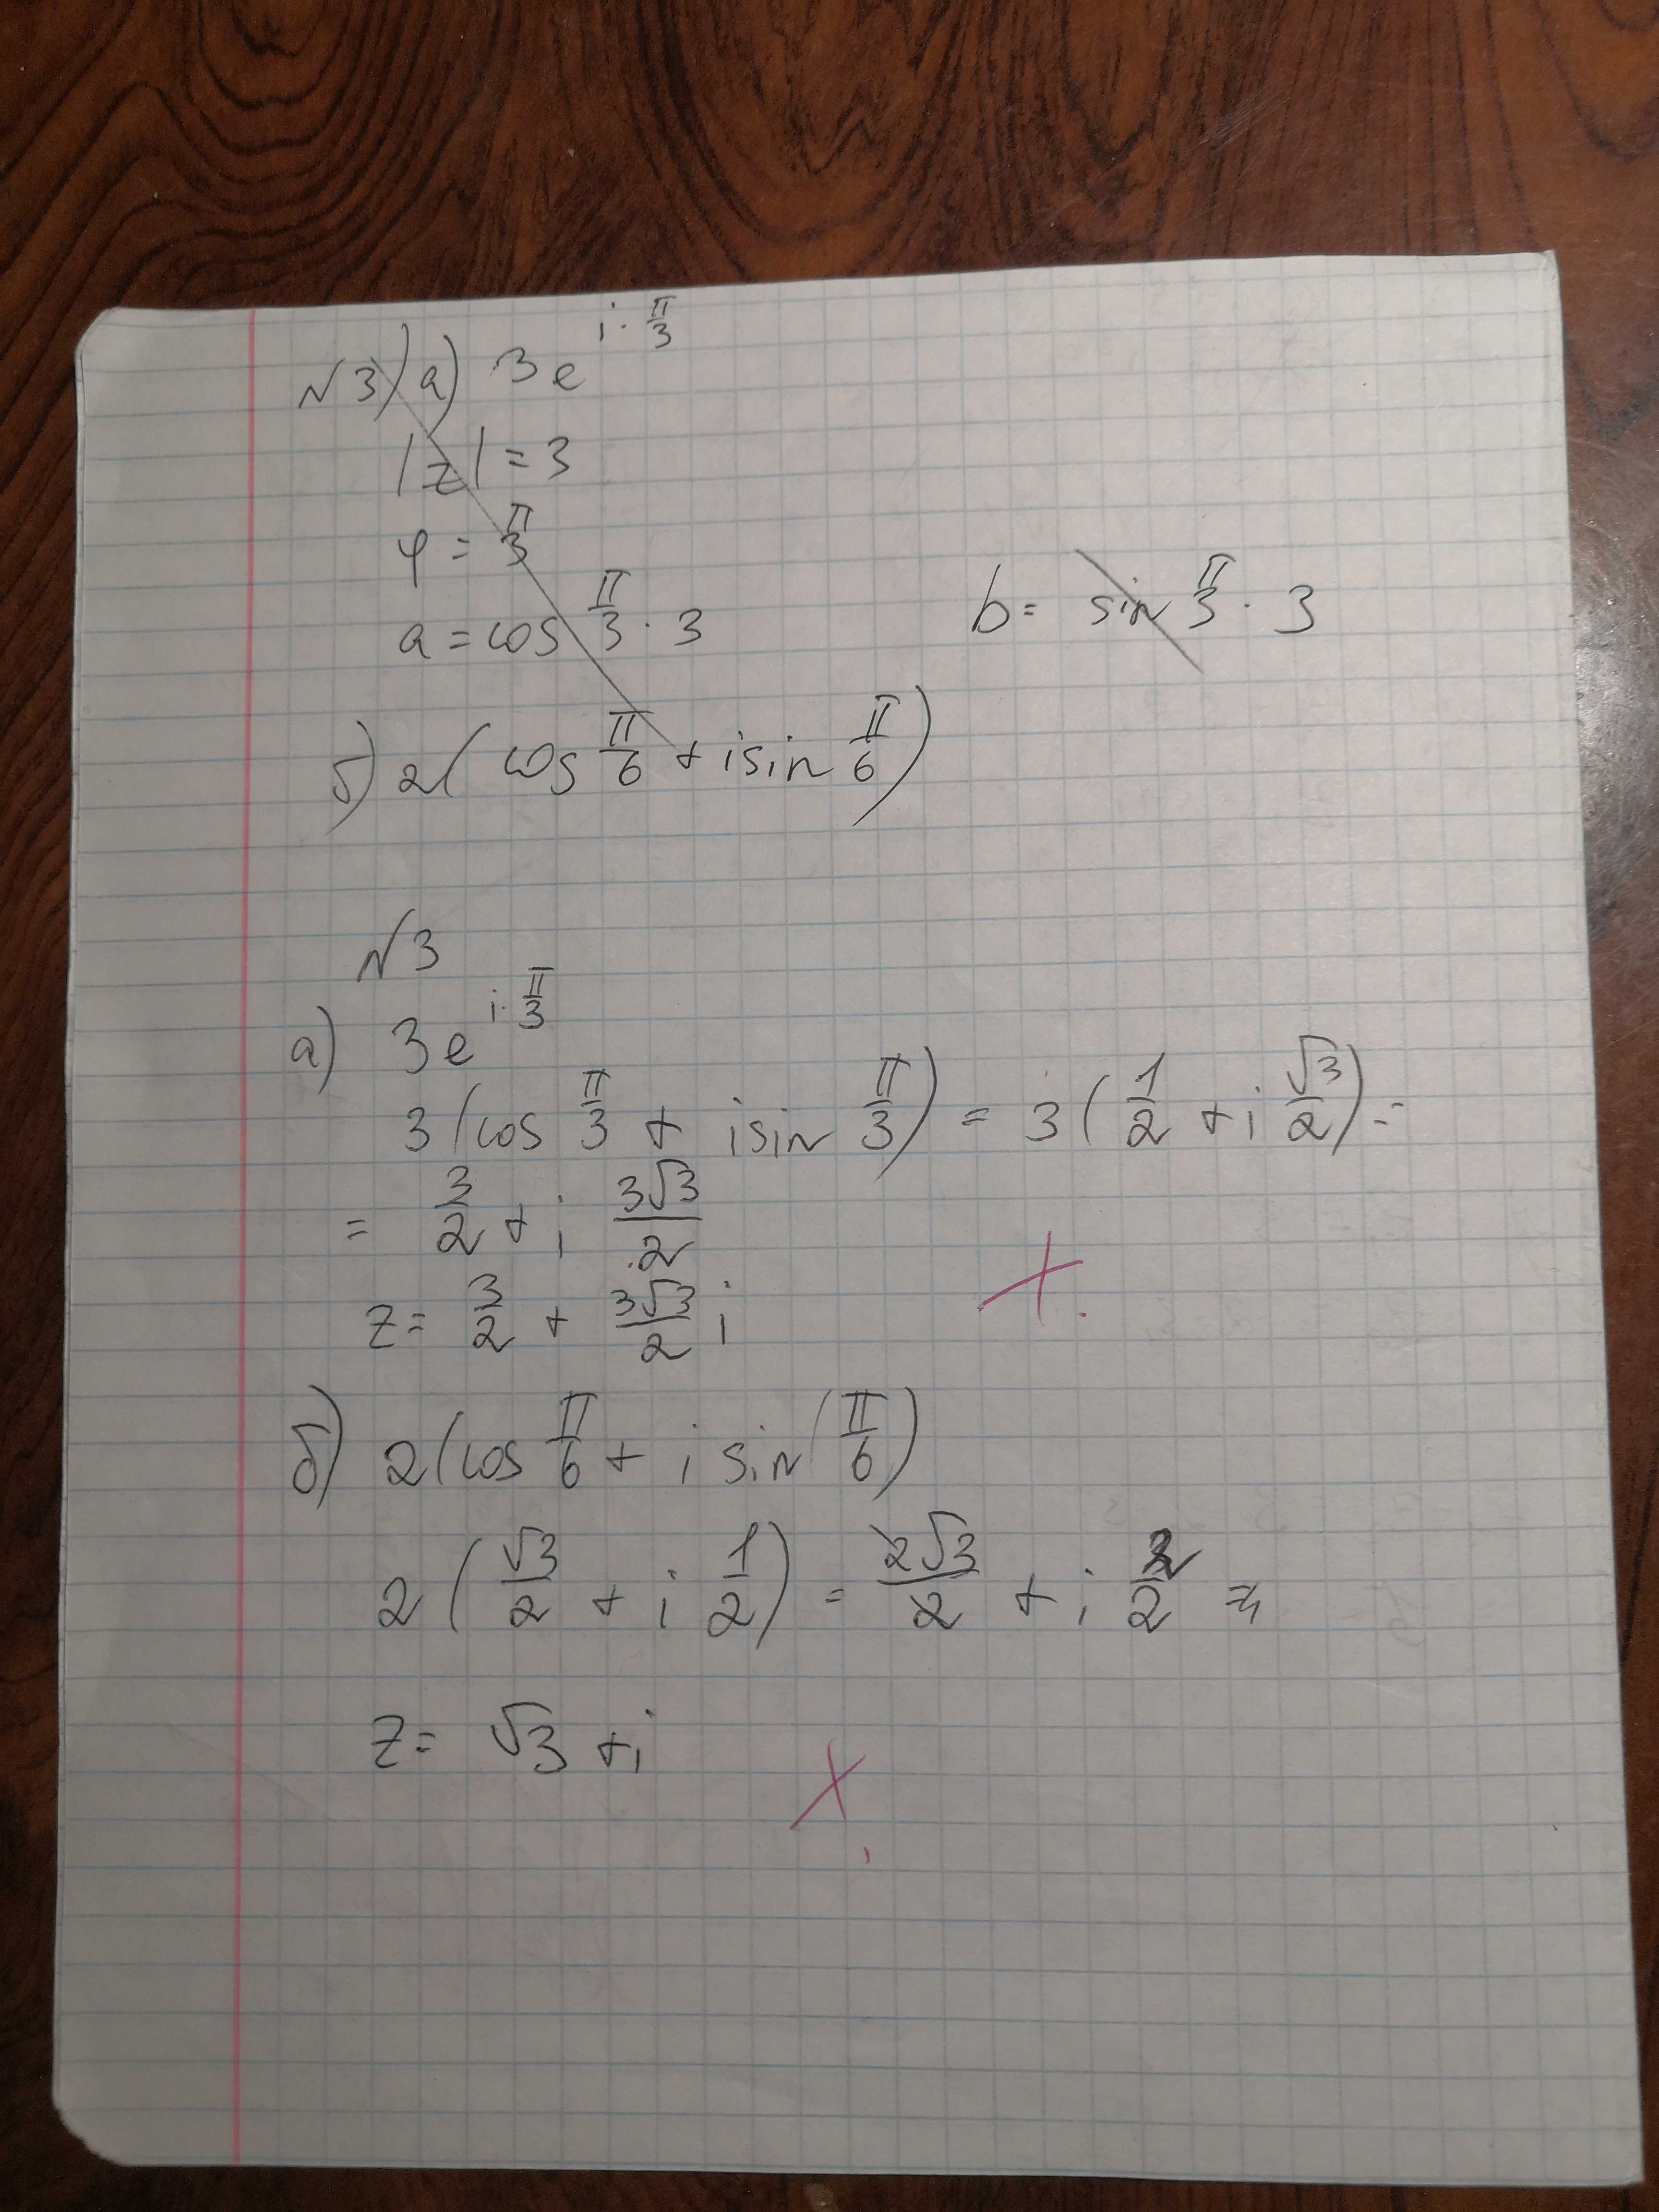 №3) а) 3e^{i·π/3}
|z| = 3
φ = π/3
a = cos π/3 · 3 b = sin π/3 · 3
б) 2(cos π/6 + i sin π/6)
№3
а) 3e^{i·π/3}
3(cos π/3 + i sin π/3) = 3(1/2 + i √3/2) =
= 3/2 + i 3√3/2
z = 3/2 + 3√3/2 i
б) 2(cos π/6 + i sin(π/6)
2(√3/2 + i 1/2) = 2√3/2 + i 2/2 =
z = √3 + i